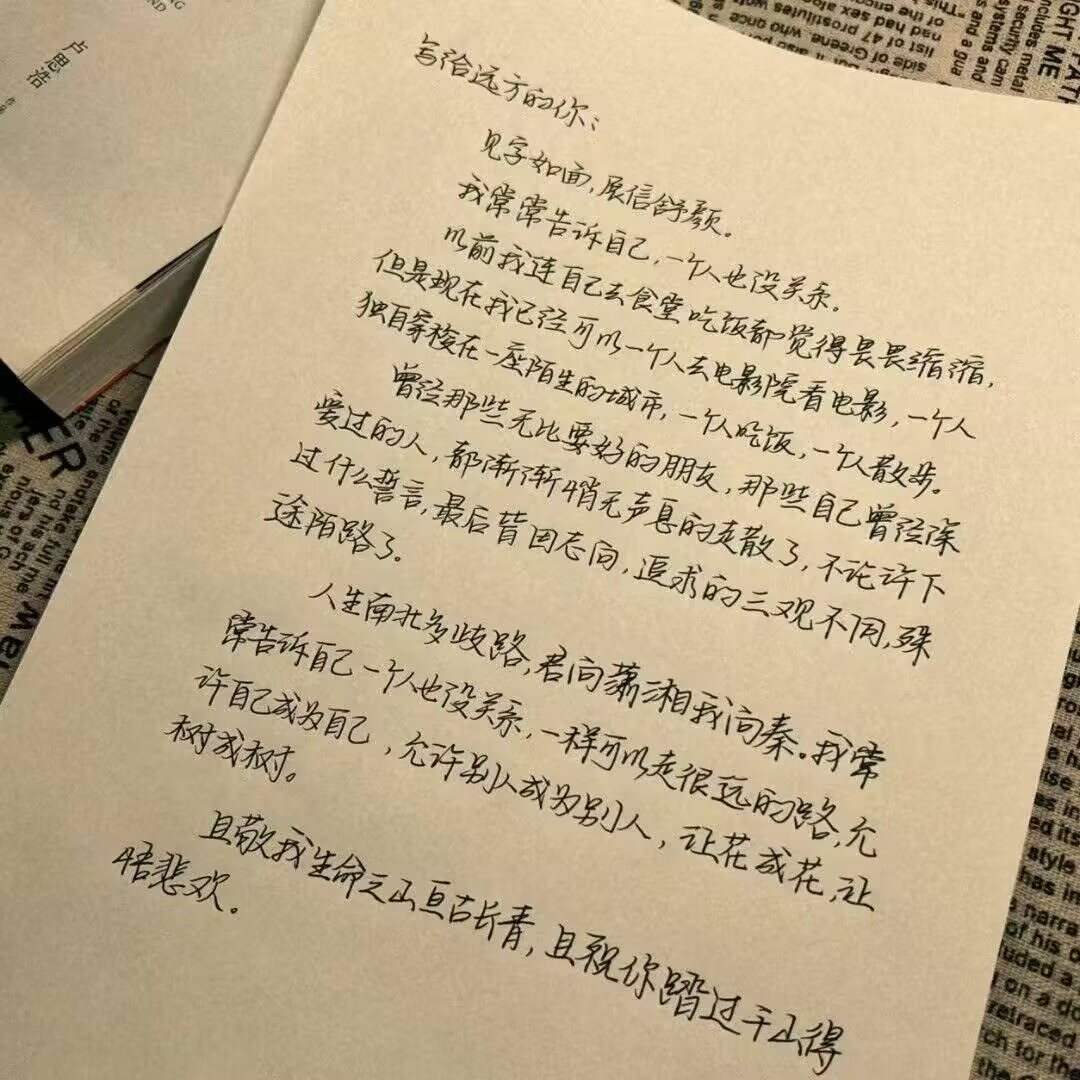 卢思浩
写给远方的你:
见字如面,展信舒颜。
我常常告诉自己,一个人也没关系。
以前我连自己去食堂吃饭都觉得畏畏缩缩,
但是现在我已经可以一个人去电影院看电影,一个人
独自穿梭在一座陌生的城市,一个人吃饭,一个人散步。
曾经那些无比要好的朋友,那些自己曾经深
爱过的人,都渐渐悄无声息的走散了,不论许下
过什么誓言,最后皆因志向,追求的三观不同,殊
途陌路了。
人生南北多歧路,君向潇湘我向秦。我常
常告诉自己一个人也没关系,一样可以走很远的路,允
许自己成为自己,允许别人成为别人,让花成花,让
树成树。
且敬我生命之山亘古长青,且祝你踏过千山得
悟悲欢。
GHT ME
includes metal
security cam
systems and
s and a gua
list of 47 prostitutes
side of Greene who
style
has in
narra
of his o
on a do
retraced
ch for the